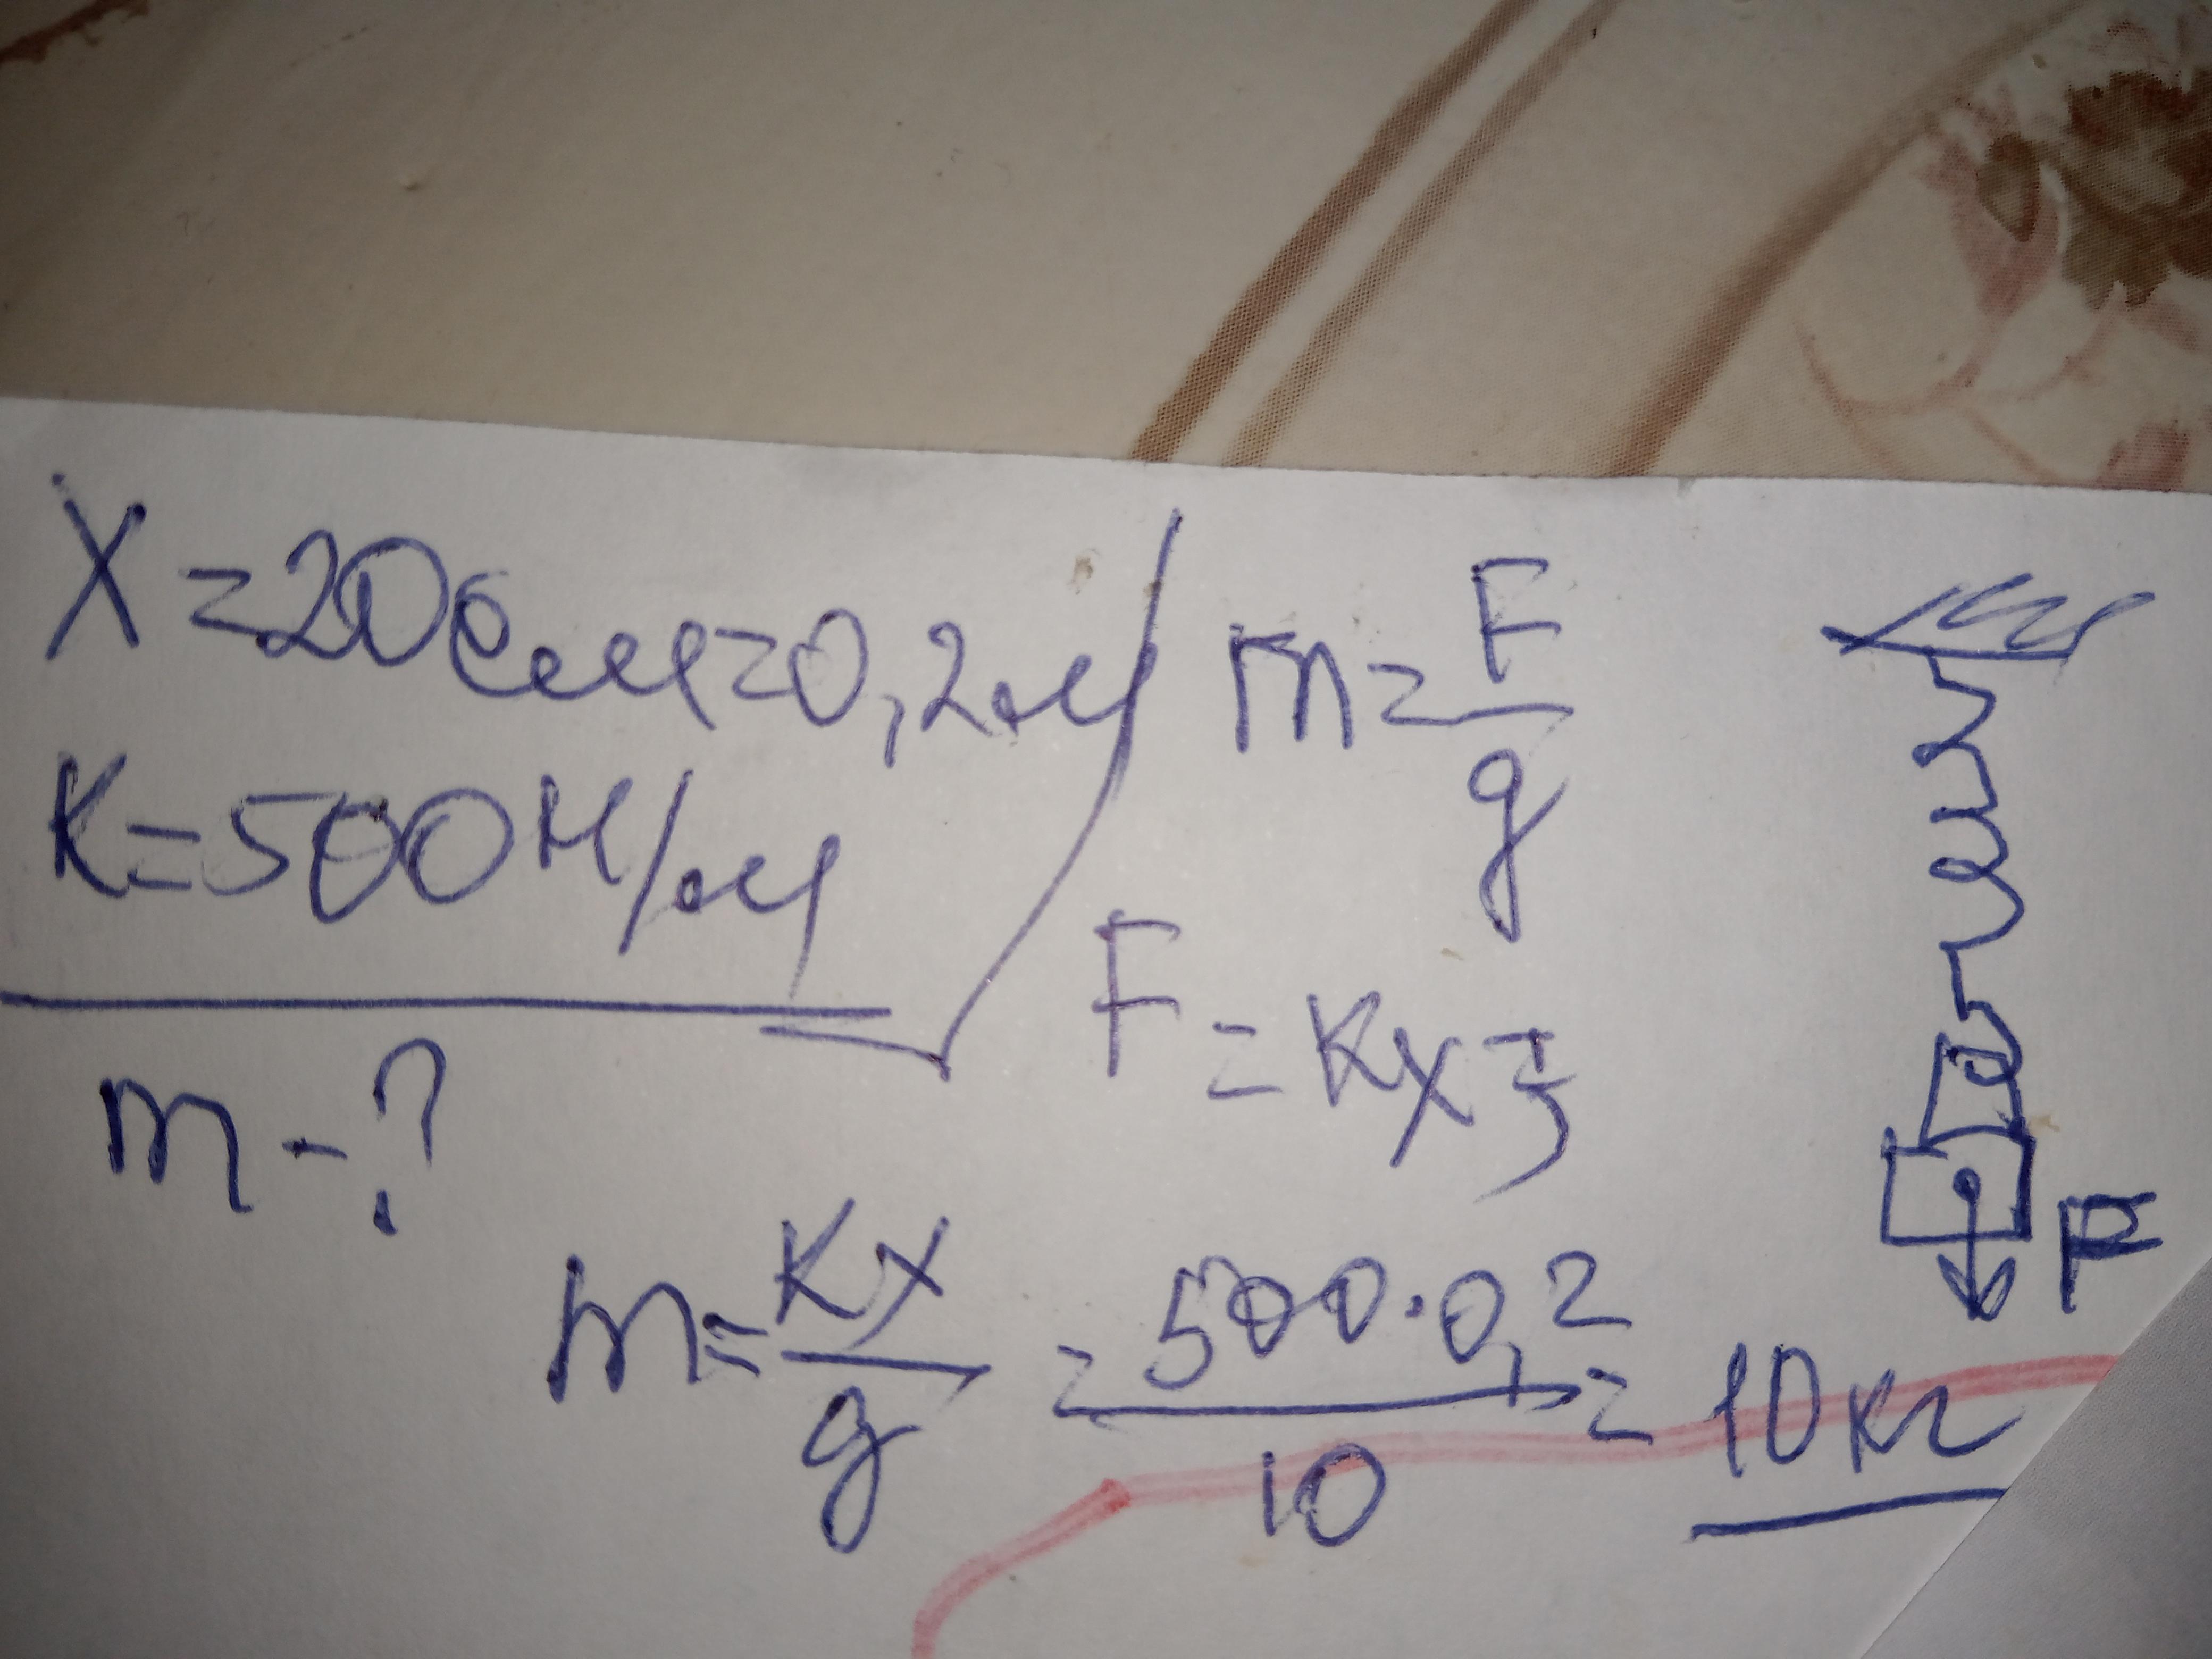 X = 20см = 0,2м
K = 500 Н/м
m - ?
m = F/g
F = Kx ⇒
m = Kx/g = 500·0,2/10 = 10кг
F